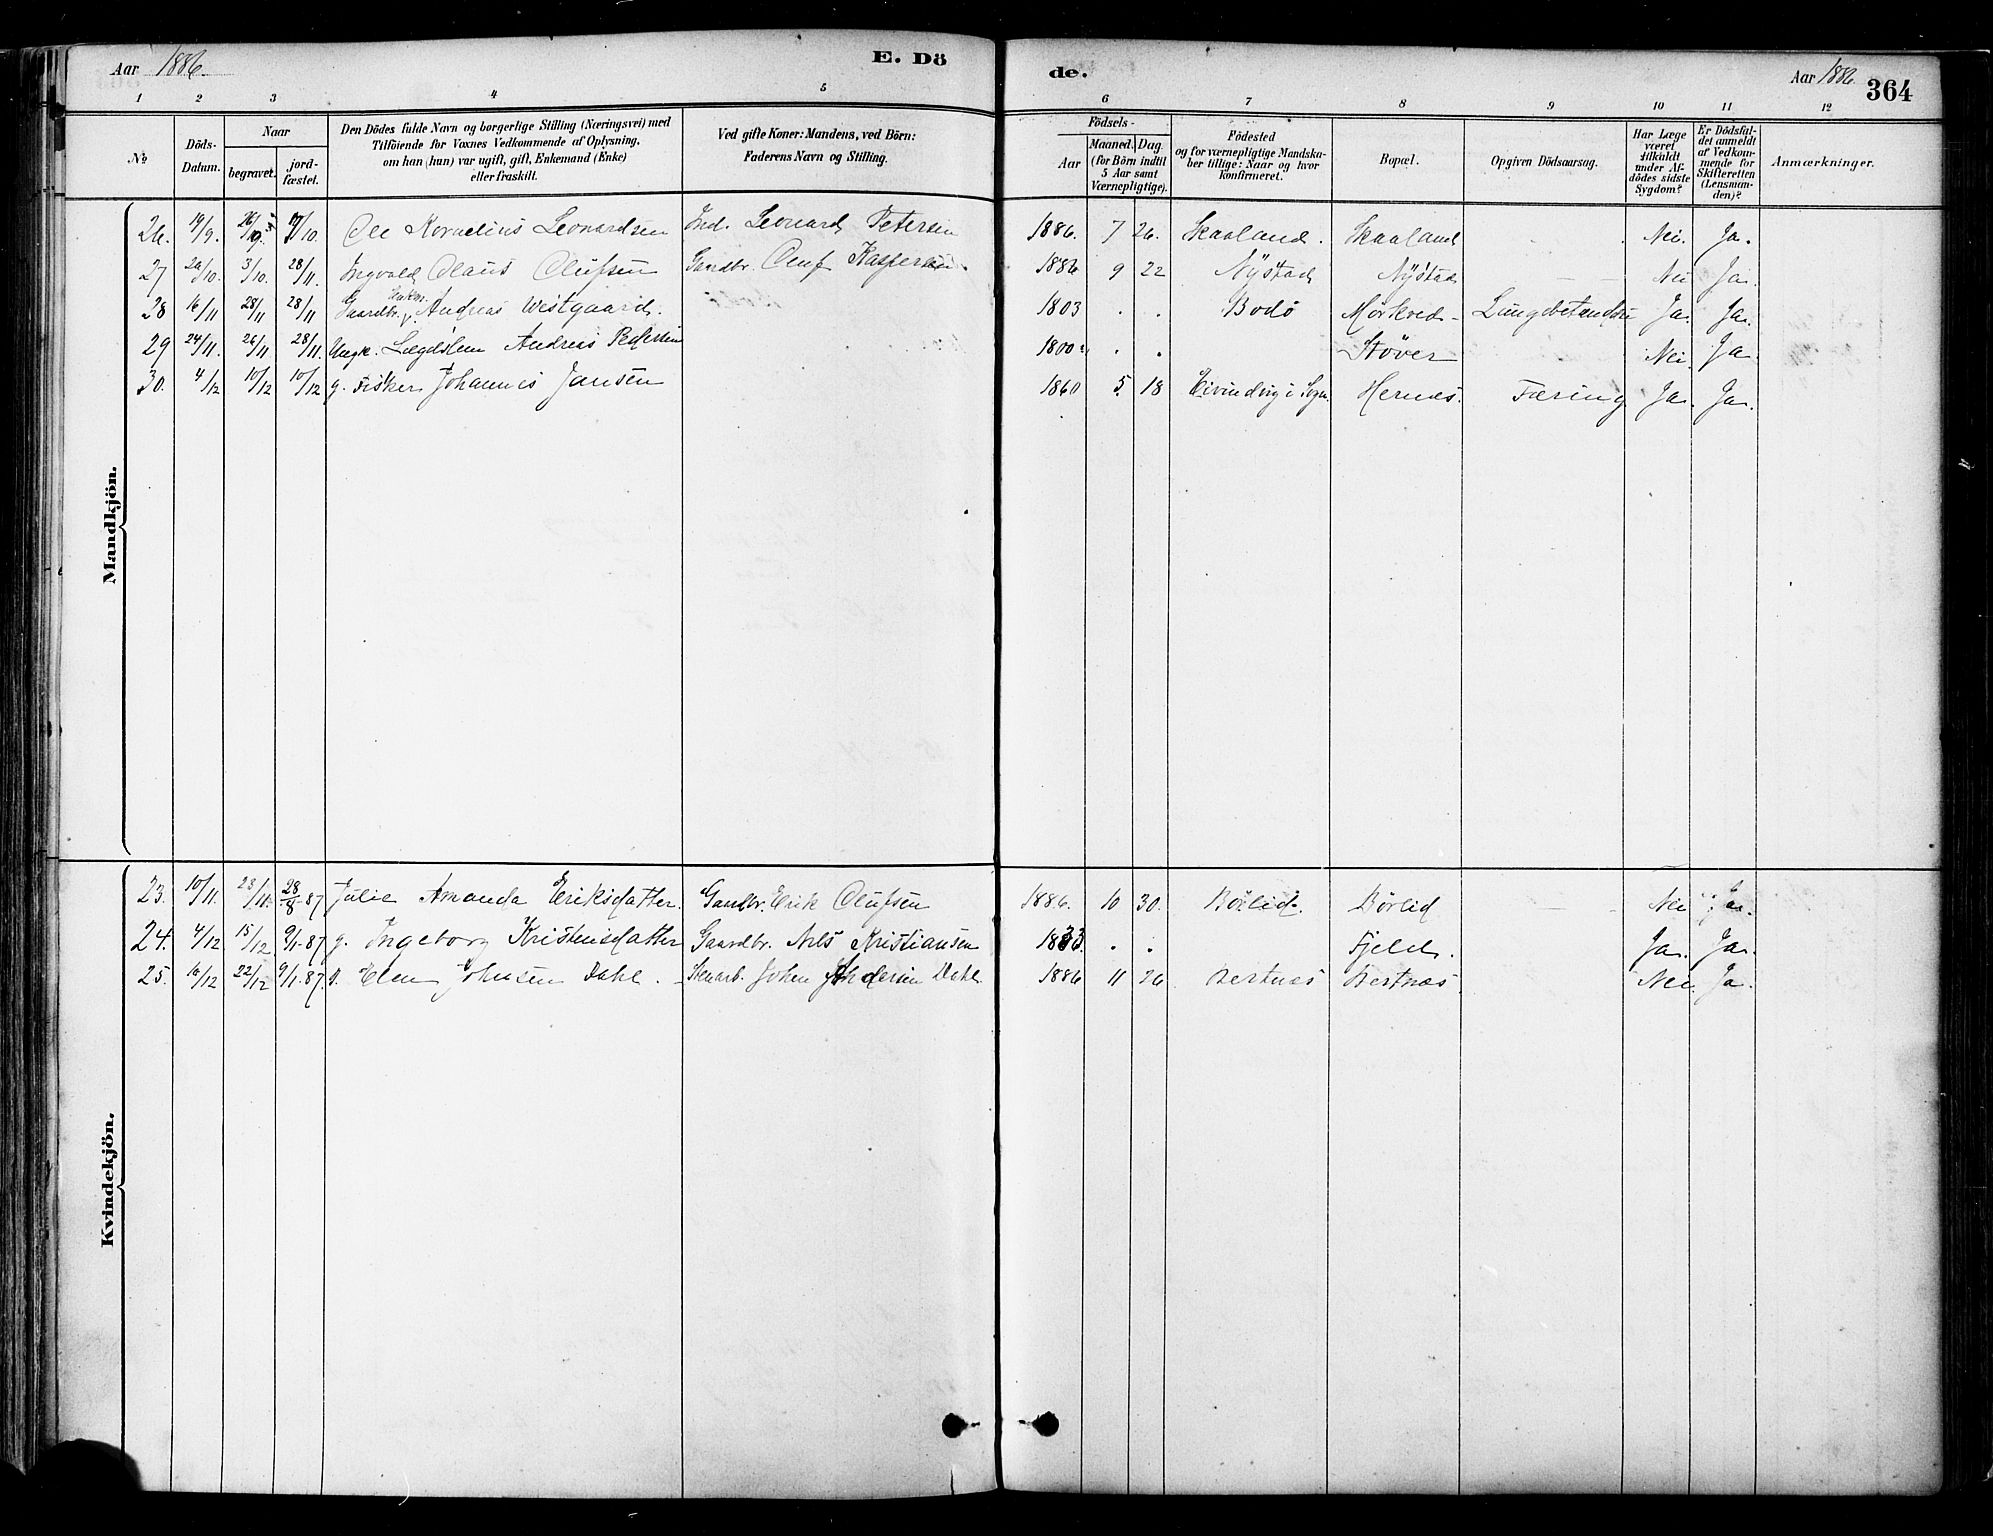 Aar 1886.
E. Dö
de.
Aar 1886.
364
1 2 3 4 5 6 7 8 9 10 11 12
No
Döds-Datum.
Naar
begravet.
jord-fæstet.
Den Dödes fulde Navn og borgerlige Stilling (Næringsvei) med
Tilföiende for Voxnes Vedkommende af Oplysning,
om han (hun) var ugift, gift, Enkemand (Enke)
eller fraskilt.
Ved gifte Koner: Mandens, ved Börn:
Faderens Navn og Stilling.
Födsels-
Aar
Maaned. Dag
(for Börn indtil
5 Aar samt
Værnepligtige).
Födested
og for værnepligtige Mandska-
ber tillige: Naar og hvor
konfirmeret.
Bopæl.
Opgiven Dödsaarsag.
Har Læge
været
tilkaldt
under Af-
dödes sidste
Sygdom?
Er Dödsfal-
det anmeldt
af Vedkom-
mende for
Skifteretten
(Lensman-
den)?
Anmærkninger.
Mandkjön.
26. 14/9. 26/9. 17/10. Ole Kornelius Leonardsen Ind. Leonard Petersen 1886. 7 26. Skaaland. Skaaland Nei. Ja.
27 /10. 3/10. 28/11. Ingvald Claus Olufsen Gaardbr. Oluf Kaspersen. 1886 9 22 Nÿstad Nÿstad Nei Ja.
28 16/11 28/11 28/11 Gaardbr. Andreas Westgaard. 1803 . . Bodö Mörkved Lungebetændelse Ja. Ja.
29 24/11. 26/11 28/11. Ungk. Lægdslem Andreas Pedersen 1800 . . Stöver Nei. Ja.
30. 4/12 10/12 10/12 g. Fisker Johannes Jansen 1860 5. 18 Eivindvig i Sogn. Hernæs. Tæring Ja. Ja.
Kvindekjön.
23. 10/11. 23/11. 28/8-87 Julie Amanda Eriksdatter. Gaardbr. Erik Olufsen 1886. 10 30. Börlid. Börlid Nei Ja.
24. 4/12 15/12 9/1-87 g. Ingeborg Kristensdatter Gaardbr. Nils Kristiansen 1833. . . Fjeld. Ja. Ja.
25. 16/12 22/12 9/1-87. Elen Johnsen Dahl. Stenarb. Johen Andersen Dahl. 1886 11 26 Bertnæs Bertnæs. Nei. Ja.